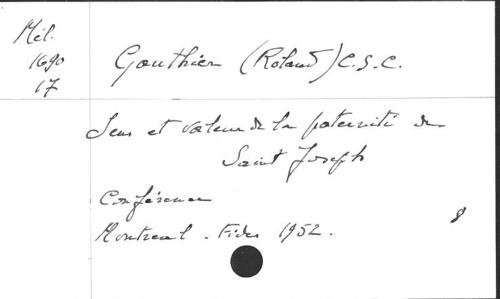 Mél.
1690
17
Gauthier (Roland) C.S.C.
Sens et valeur de la paternité de
Saint Joseph
Conférence
Montreal. Fides 1952.
8